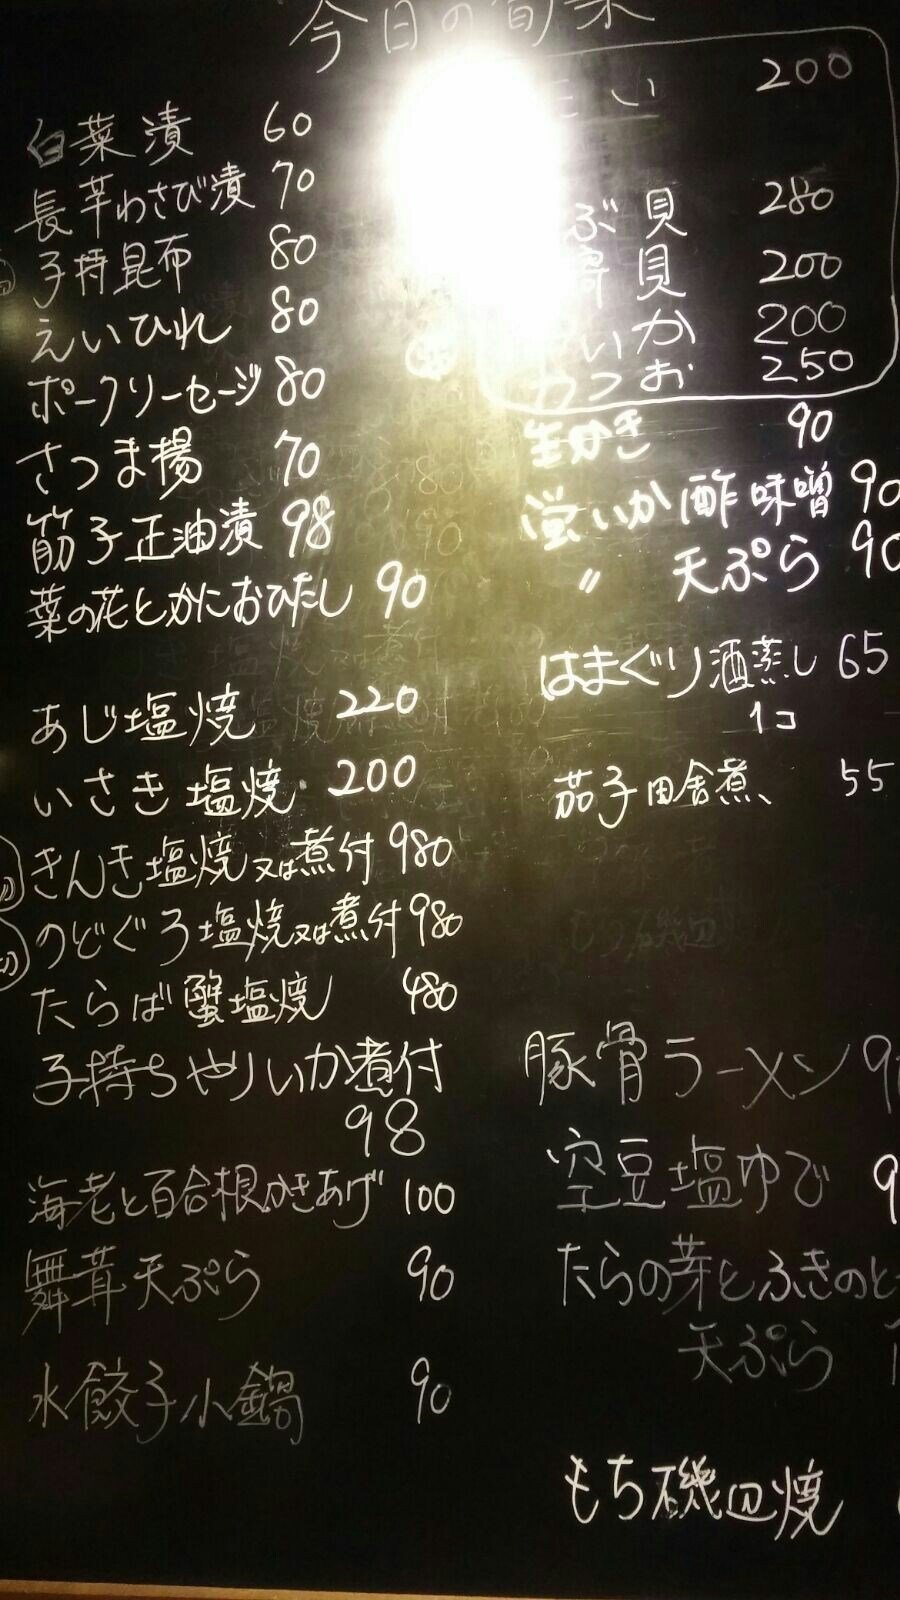 今日の旬菜
白菜漬 60
長芋わさび漬 70
子持昆布 80
えいひれ 80
ポークソーセージ 80
さつま揚 70
筋子正油漬 98
菜の花とかにおひたし 90
あじ塩焼 220
いさき塩焼 200
きんき塩焼又は煮付 980
のどぐろ塩焼又は煮付 980
たらば蟹塩焼 480
子持ちやりいか煮付
98
海老と百合根かきあげ 100
舞茸天ぷら 90
水餃子小鍋 90
い 200
ぶ貝 280
貝 200
いか 200
かつお 250
生かき 90
蛍いか酢味噌 90
〃 天ぷら 90
はまぐり酒蒸し 65
1コ
茄子田舎煮 55
豚骨ラーメン 9
空豆塩ゆで 9
たらの芽とふきのと
天ぷら
もち磯辺焼